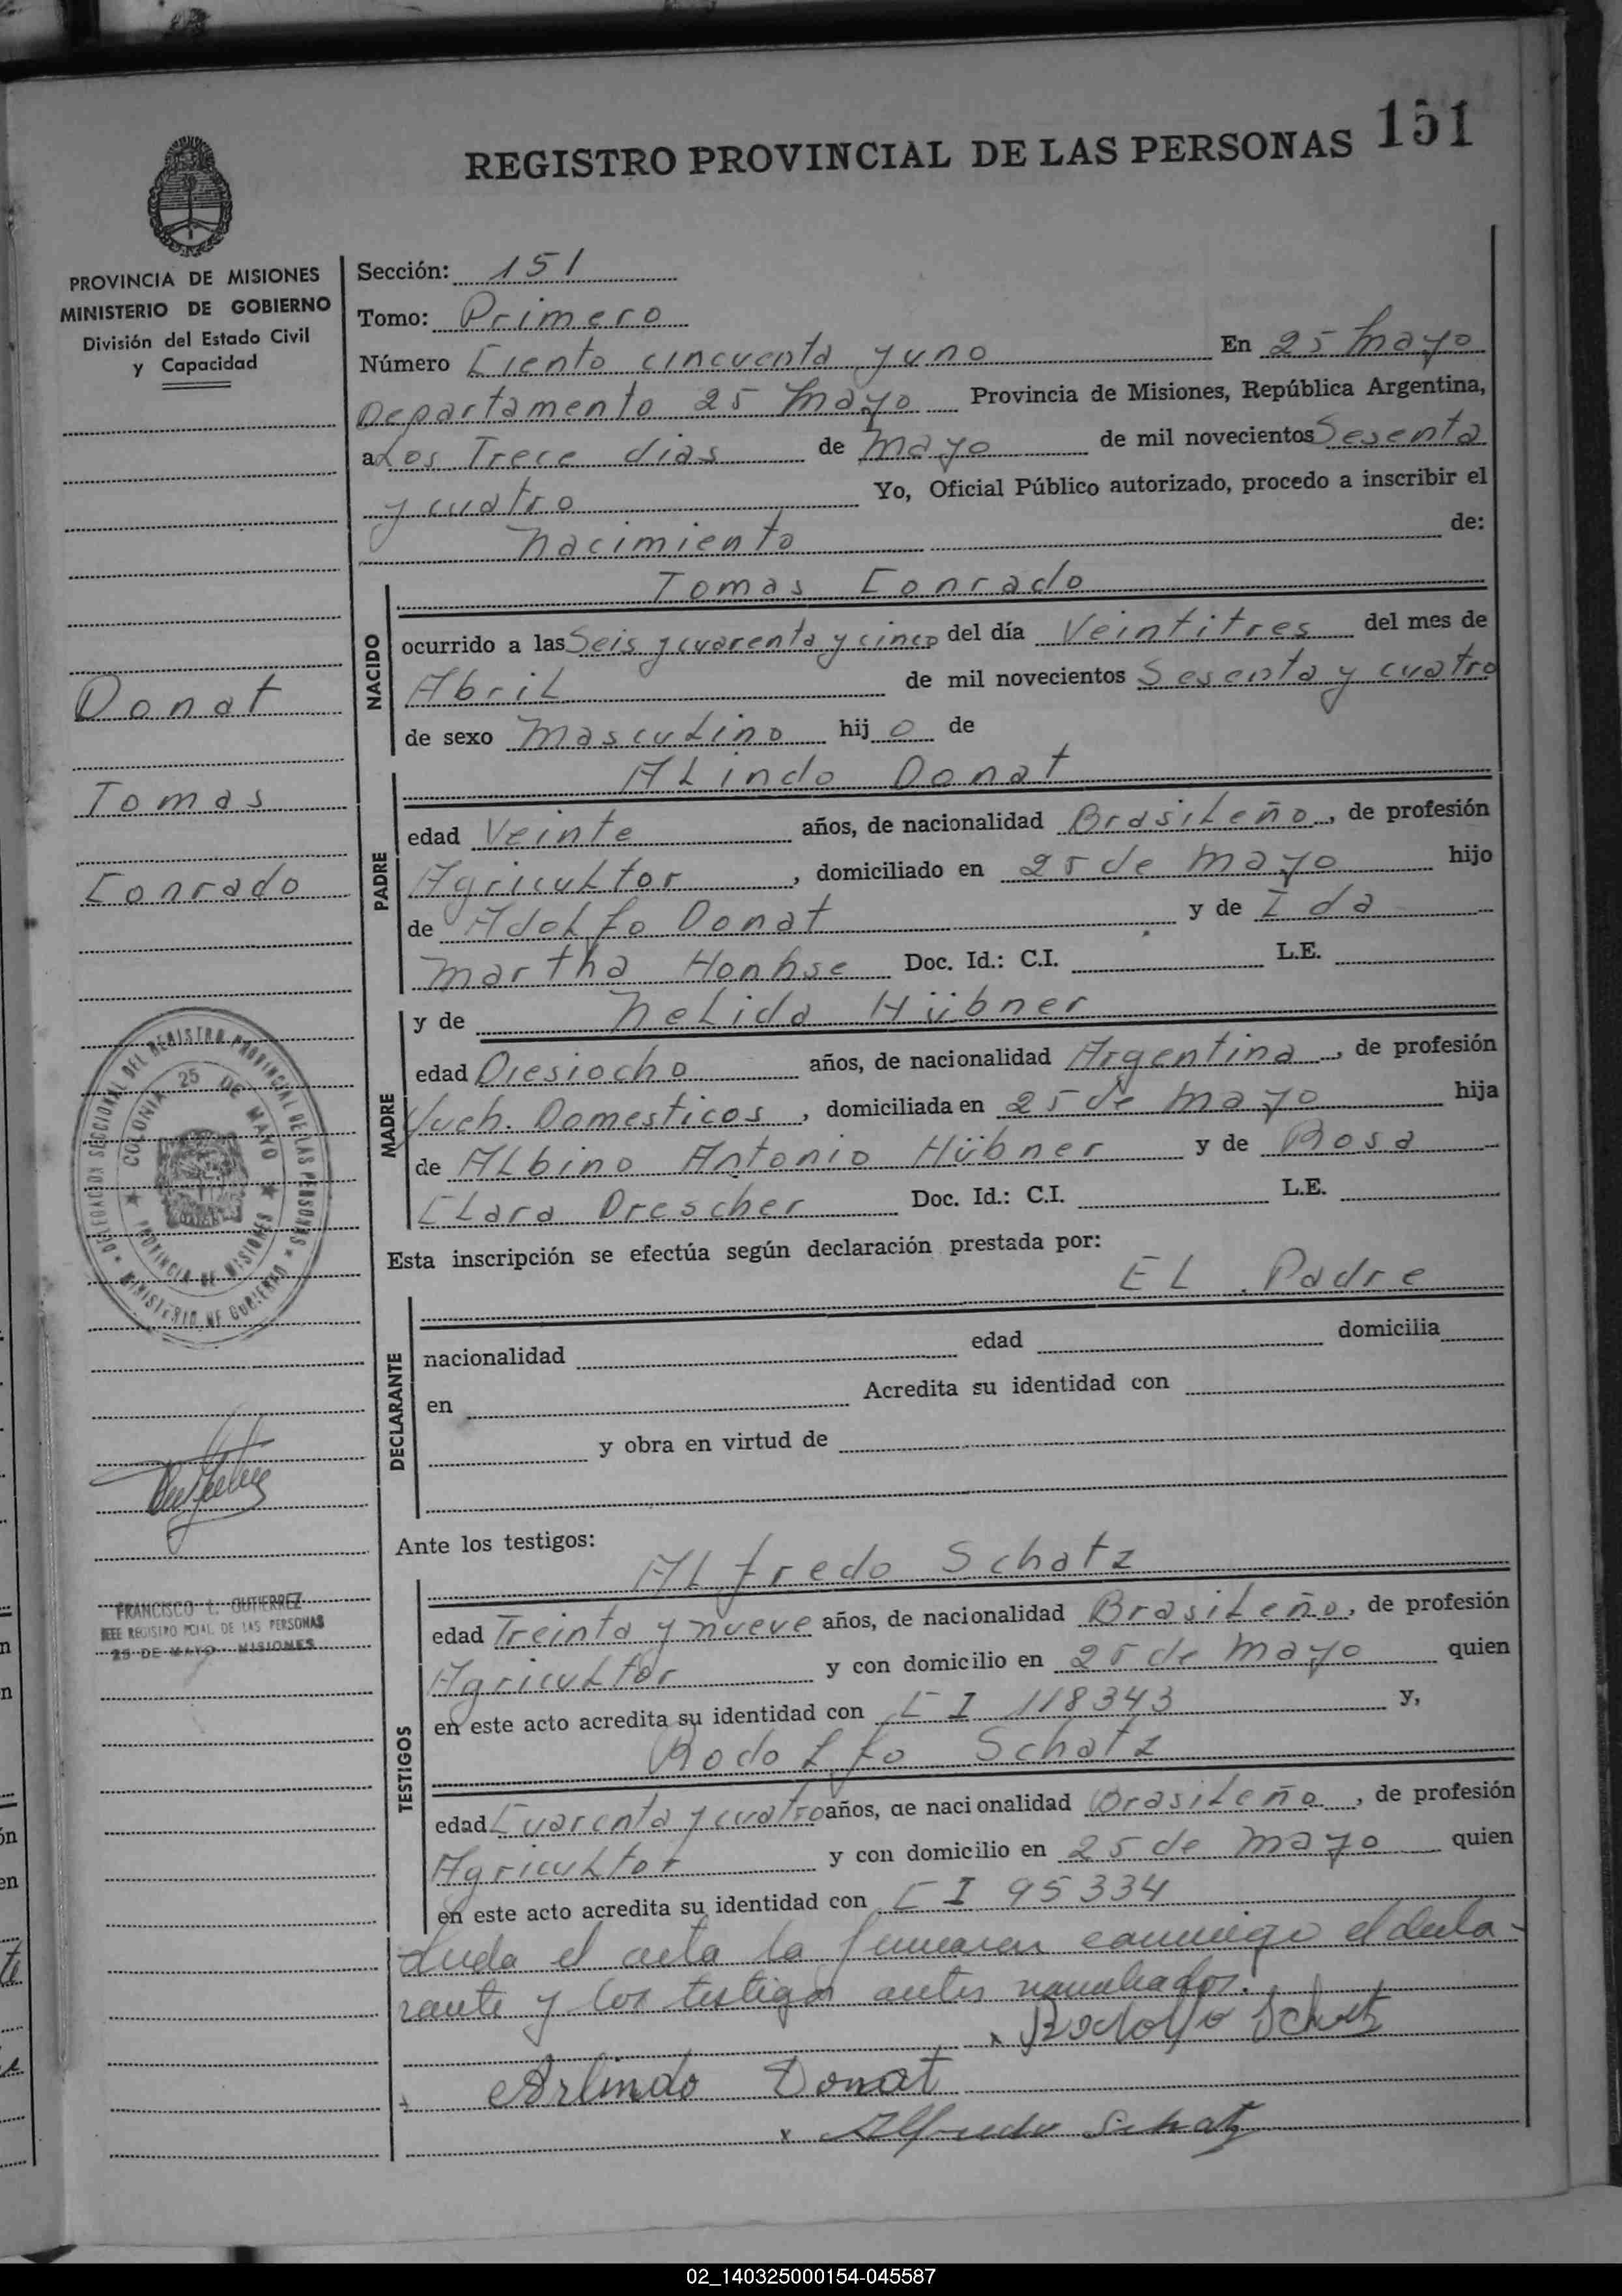 151
REGISTRO PROVINCIAL DE LAS PERSONAS
PROVINCIA DE MISIONES
MINISTERIO DE GOBIERNO
División del Estado Civil
y Capacidad
Donat
Tomas
Conrado
DELEGACION SECCIONAL DEL REGISTRO PROVINCIAL DE LAS PERSONAS
MINISTERIO DE GOBIERNO
COLONIA 25 DE MAYO
PROVINCIA DE MISIONES
FRANCISCO L. GUTIERREZ
JEFE REGISTRO PCIAL. DE LAS PERSONAS
25 DE MAYO - MISIONES
Sección: 151
Tomo: Primero
Número Ciento cincuenta y uno En 25 Mayo
Departamento 25 Mayo Provincia de Misiones, República Argentina,
a Los Trece dias de Mayo de mil novecientos Sesenta
y cuatro Yo, Oficial Público autorizado, procedo a inscribir el
Nacimiento de:
Tomas Conrado
NACIDO
ocurrido a las Seis y cuarenta y cinco del día Veintitres del mes de
Abril de mil novecientos Sesenta y cuatro
de sexo Masculino hijo de
ALindo Donat
PADRE
edad Veinte años, de nacionalidad Brasileño, de profesión
Agricultor, domiciliado en 25 de Mayo hijo
de Adolfo Donat y de Ida
Martha Honhse Doc. Id.: C.I. L.E.
y de Nelida Hübner
MADRE
edad Diesiocho años, de nacionalidad Argentina, de profesión
Domesticos, domiciliada en 25 de Mayo hija
de Albino Antonio Hübner y de Rosa
Clara Drescher Doc. Id.: C.I. L.E.
Esta inscripción se efectúa según declaración prestada por:
El Padre
DECLARANTE
nacionalidad edad domicilia
en Acredita su identidad con
y obra en virtud de
Ante los testigos:
Alfredo Schatz
TESTIGOS
edad Treinta y nueve años, de nacionalidad Brasileño, de profesión
Agricultor y con domicilio en 25 de Mayo quien
en este acto acredita su identidad con CI 118343 y,
Rodolfo Schatz
edad Cuarenta y cuatro años, de nacionalidad Brasileño, de profesión
Agricultor y con domicilio en 25 de Mayo quien
en este acto acredita su identidad con CI 95334
Leida el acta la firmaron conmigo el decla-
rante y los testigos antes nombrados.
x Rodolfo Schatz
x Arlindo Donat
x Alfredo Schatz
02_140325000154-045587